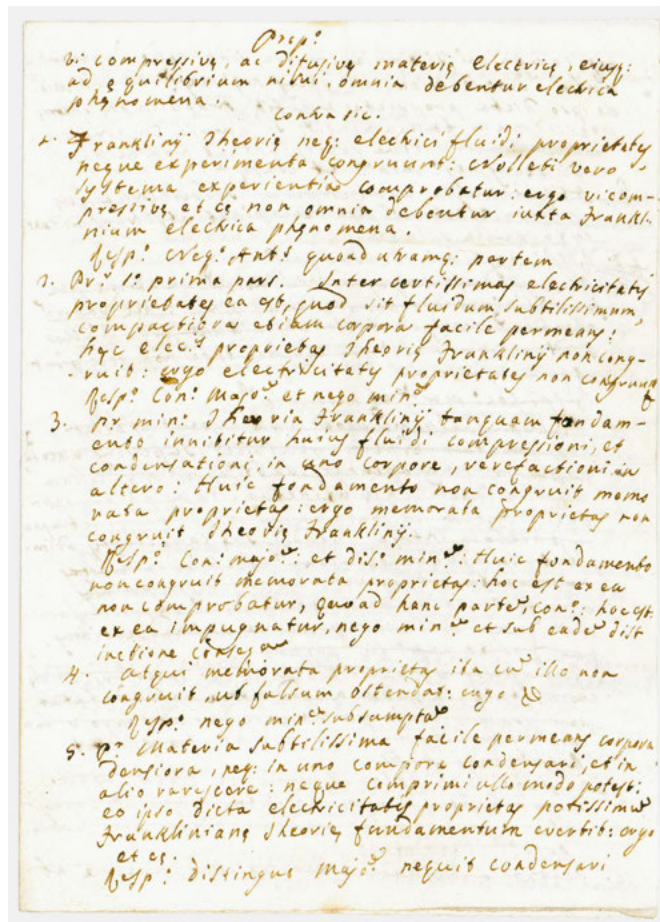 Propº
vi compressivę, ac difusivę materię electricę, eiusq:
ad ęquilibrium nisui, omnia debentur electrica
phęnomena.
Contra sic.
1. Franklinij Theorię neq: electrici fluidi proprietates
neque experimenta congruunt: Nolleti vero
systema experientia comprobatur: ergo vi com-
pressivę, et cę non omnia debentur iuxta Frankli-
nium electrica phęnomena.
Respº Neg: Antˢ quoad utramq: partem
2. Prʳ 1º prima pars. Inter certissimas electricitatis
proprietates ea est, quod sit fluidum subtilissimum,
compactiora etiam corpora facile permeans:
hęc elecˢ proprietas Theorię Franklinij non cong-
ruit: ergo electricitatis proprietates non congruunt
Respº Conº Majoᵐ et nego minᵐ
3. Pr min: Theoria Franklinij tanquam fundam-
ento innititur huius fluidi compressioni, et
condensationi in uno corpore, rarefactioni in
altero: Huic fundamento non congruit memo
rata proprietas: ergo memorata proprietas non
congruit Theorię Franklinij.
Respº Con: majoᵐ, et disº minᵐ: Huic fundamento
non congruit memorata proprietas: hoc est ex ea
non comprobatur, quoad hanc parte, conº: hoc est
ex ea impugnatur, nego minᵐ et sub eade dist
inctione conseqᵃ
4. Atqui memorata proprietas ita cu illo non
congruit, ut falsum ostendat: ergo &
Respº nego minᵐ subsumpta
5. Pʳ Materia subtilissima facile permeans corpora
densiora, neq: in uno compora condensari, et in
alio rarescere: neque comprimi ullo modo potest:
eo ipso dicta electricitatis proprietas potissimu
Franklinianę Theorię fundamentum evertit: ergo
et cę.
Respº: distinguo Majoᵐ nequit condensari